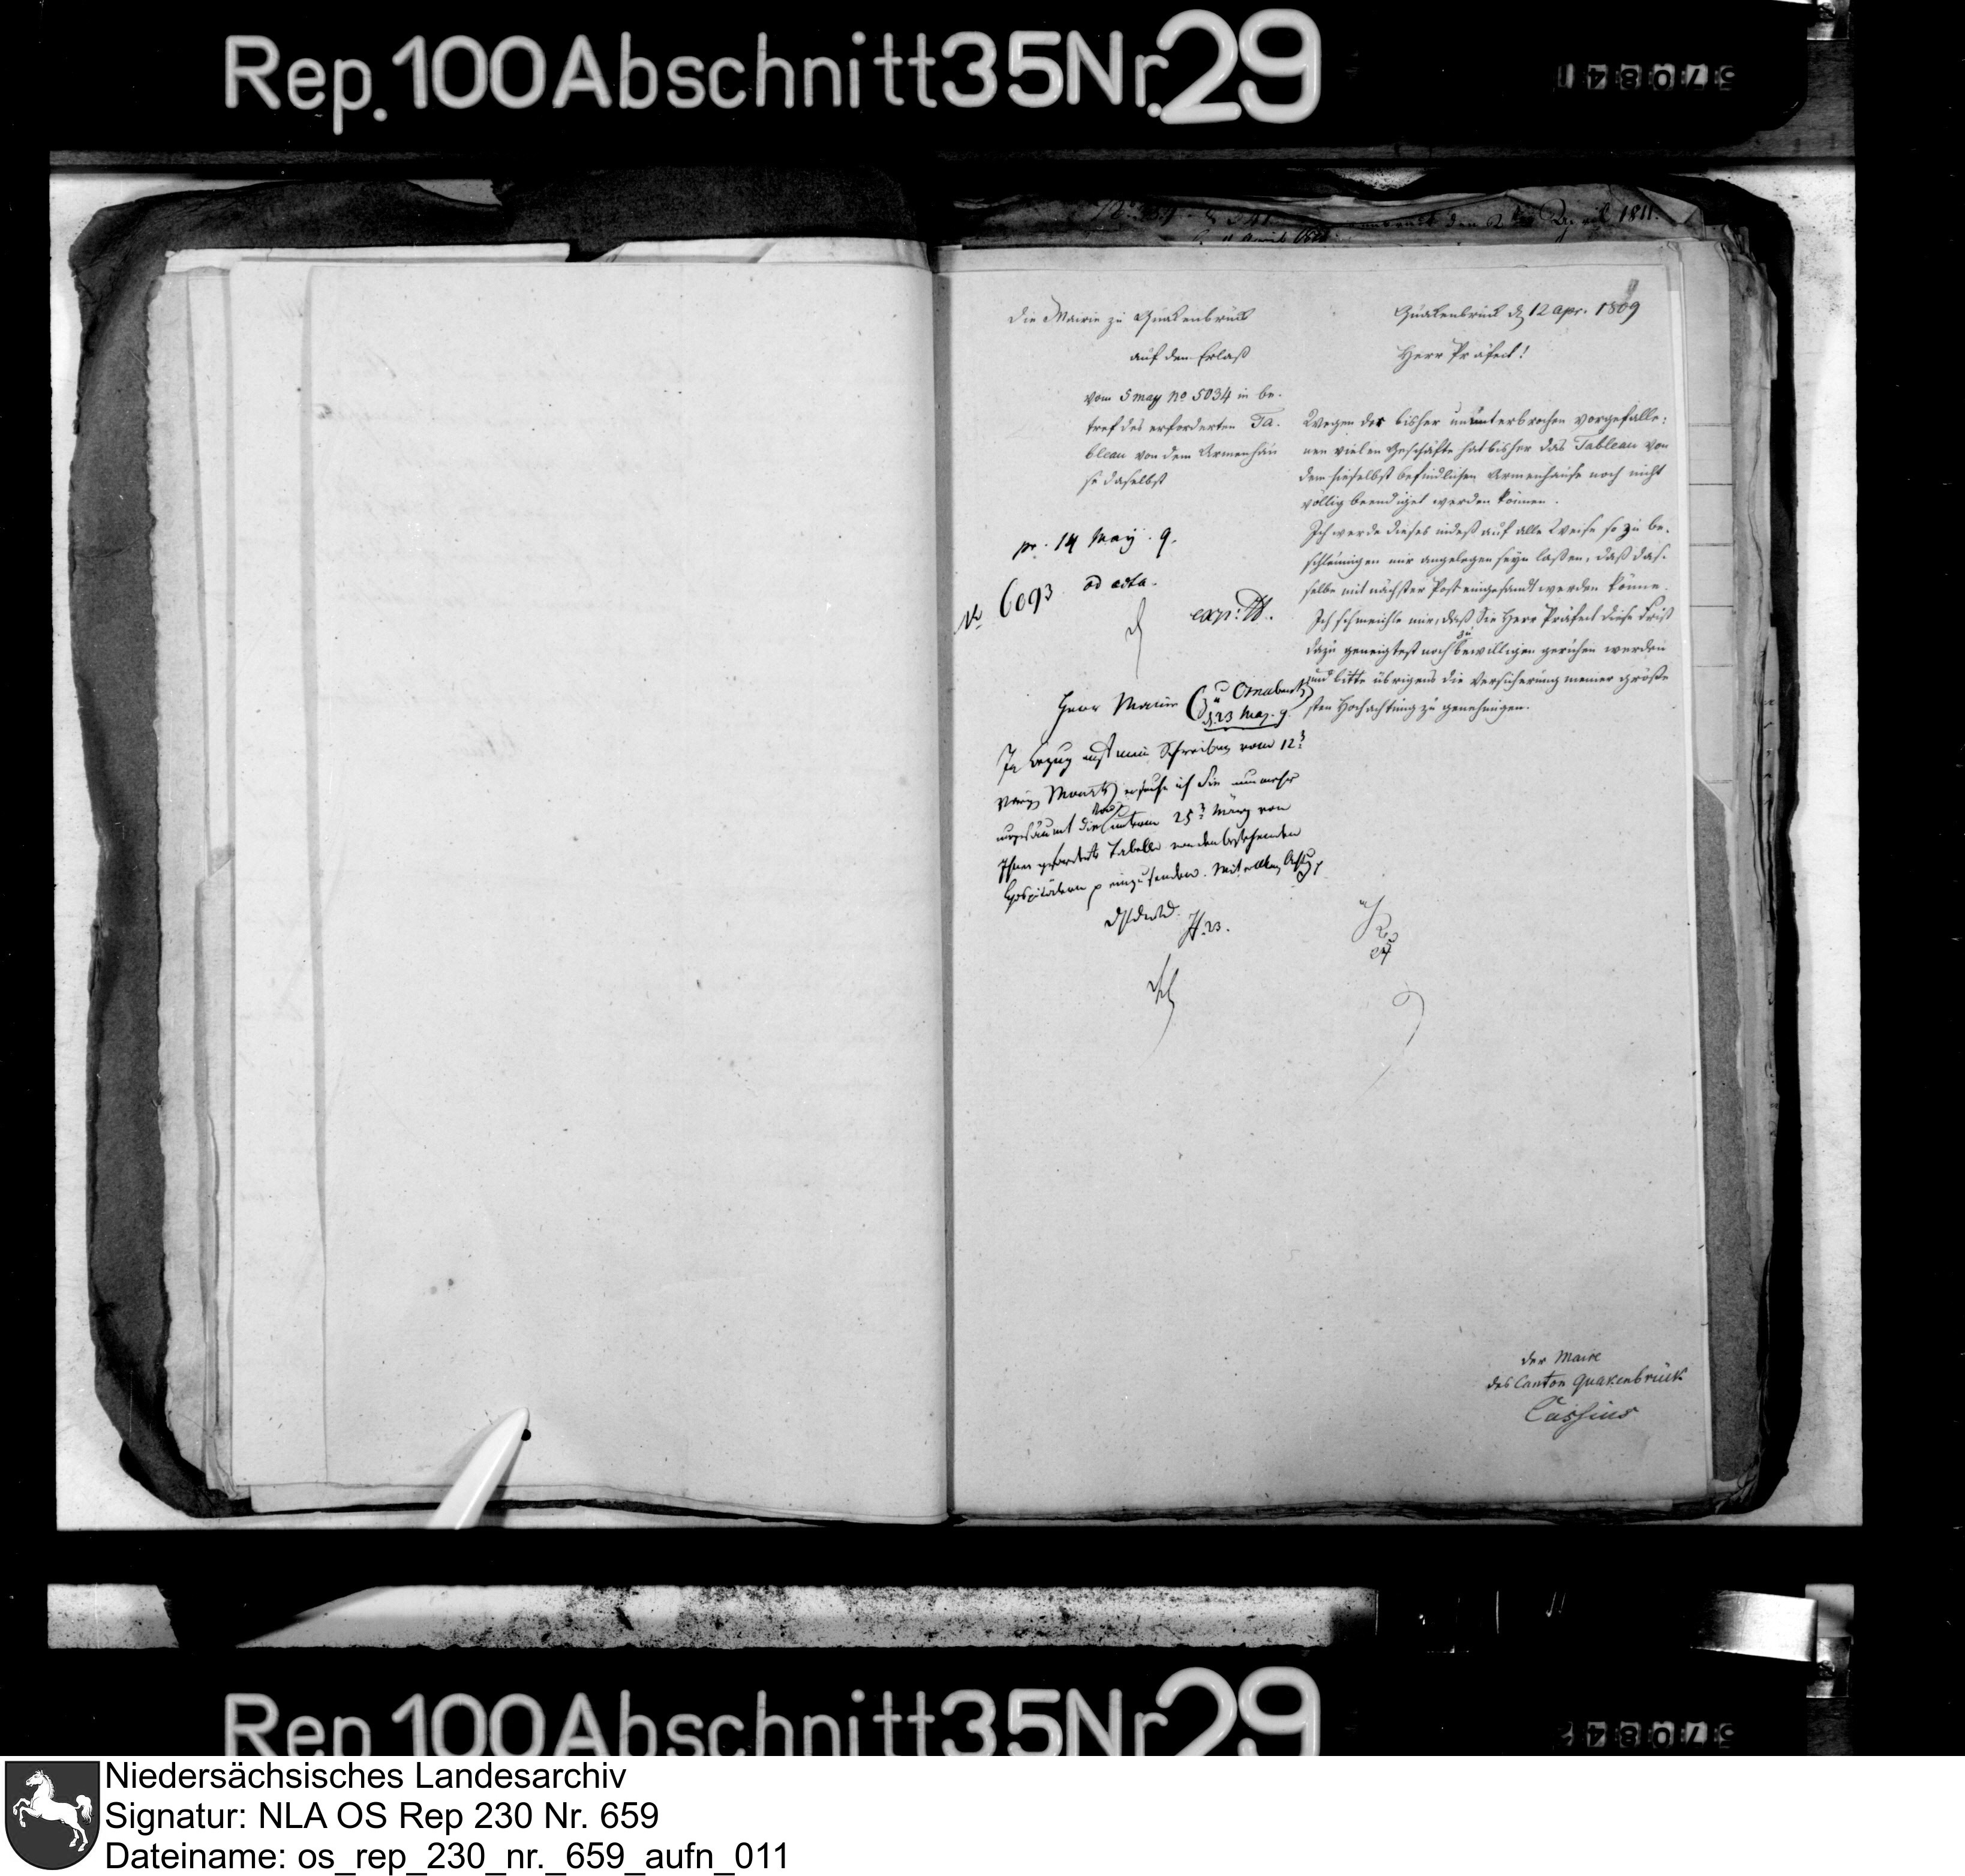 Rep. 100 Abschnitt 35 Nr. 29
Die Mairie zu Quakenbrück
auf den Erlaß
vom 5 may no 5034 in be-
tref des erforderten Ta-
bleau von dem Armenhäu
se daselbst
pr. 14 May. 9.
No 6093 ad acta.
exp:
Herr Maire
Osnabrück
d. 23 May. 9.
In Bezug auf mein Schreiben vom 12t
vorig Monats ersuche ich Sie nunmehr
ungesäumt die unterm 25t März von
Ihnen geforderte Tabelle von den bestehenden
Hospitälern p einzusenden. Mit
Quakenbrück d 12 apr. 1809
Herr Präfect!
Wegen der bisher ununterbrochen vorgefalle-
nen vielen Geschäfte hat bisher das Tableau von
dem hieselbst befindlichen Armenhause noch nicht
völlig beendiget werden können.
Ich werde dieses indeß auf alle Weise so zu be-
schleunigen mir angelegen seyn laßen, daß das-
selbe mit nächster Post eingesandt werden könne.
Ich schmeichle mir, daß Sie Herr Präfect diese Frist
dazu geneigtest noch zu bewilligen geruhen werden
und bitte übrigens die Versicherung meiner größe-
sten Hochachtung zu genehmigen.
der Maire
des Canton Quakenbrück
Cassius
Rep 100 Abschnitt 35 Nr 29
Niedersächsisches Landesarchiv
Signatur: NLA OS Rep 230 Nr. 659
Dateiname: os_rep_230_nr._659_aufn_011